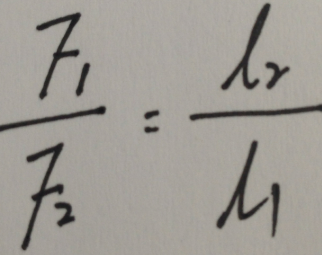 F₁/F₂ = l₂/l₁